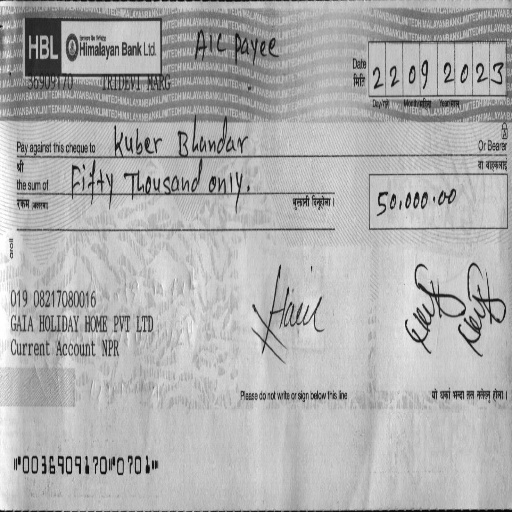 HBL Himalayan Bank Ltd.
A/C Payee
36909170 TRIDEVI MARG
Date मिति 22092023
Day/गते Month/महिना Year/साल
Pay against this cheque to Kuber Bhandar Or Bearer
श्री वा वाहकलाई
the sum of Fifty Thousand only. 50,000.00
रकम (अक्षरमा) भुक्तानी दिनुहोला ।
019 08217080016
GAIA HOLIDAY HOME PVT LTD
Current Account NPR
Please do not write or sign below this line
00369091700701